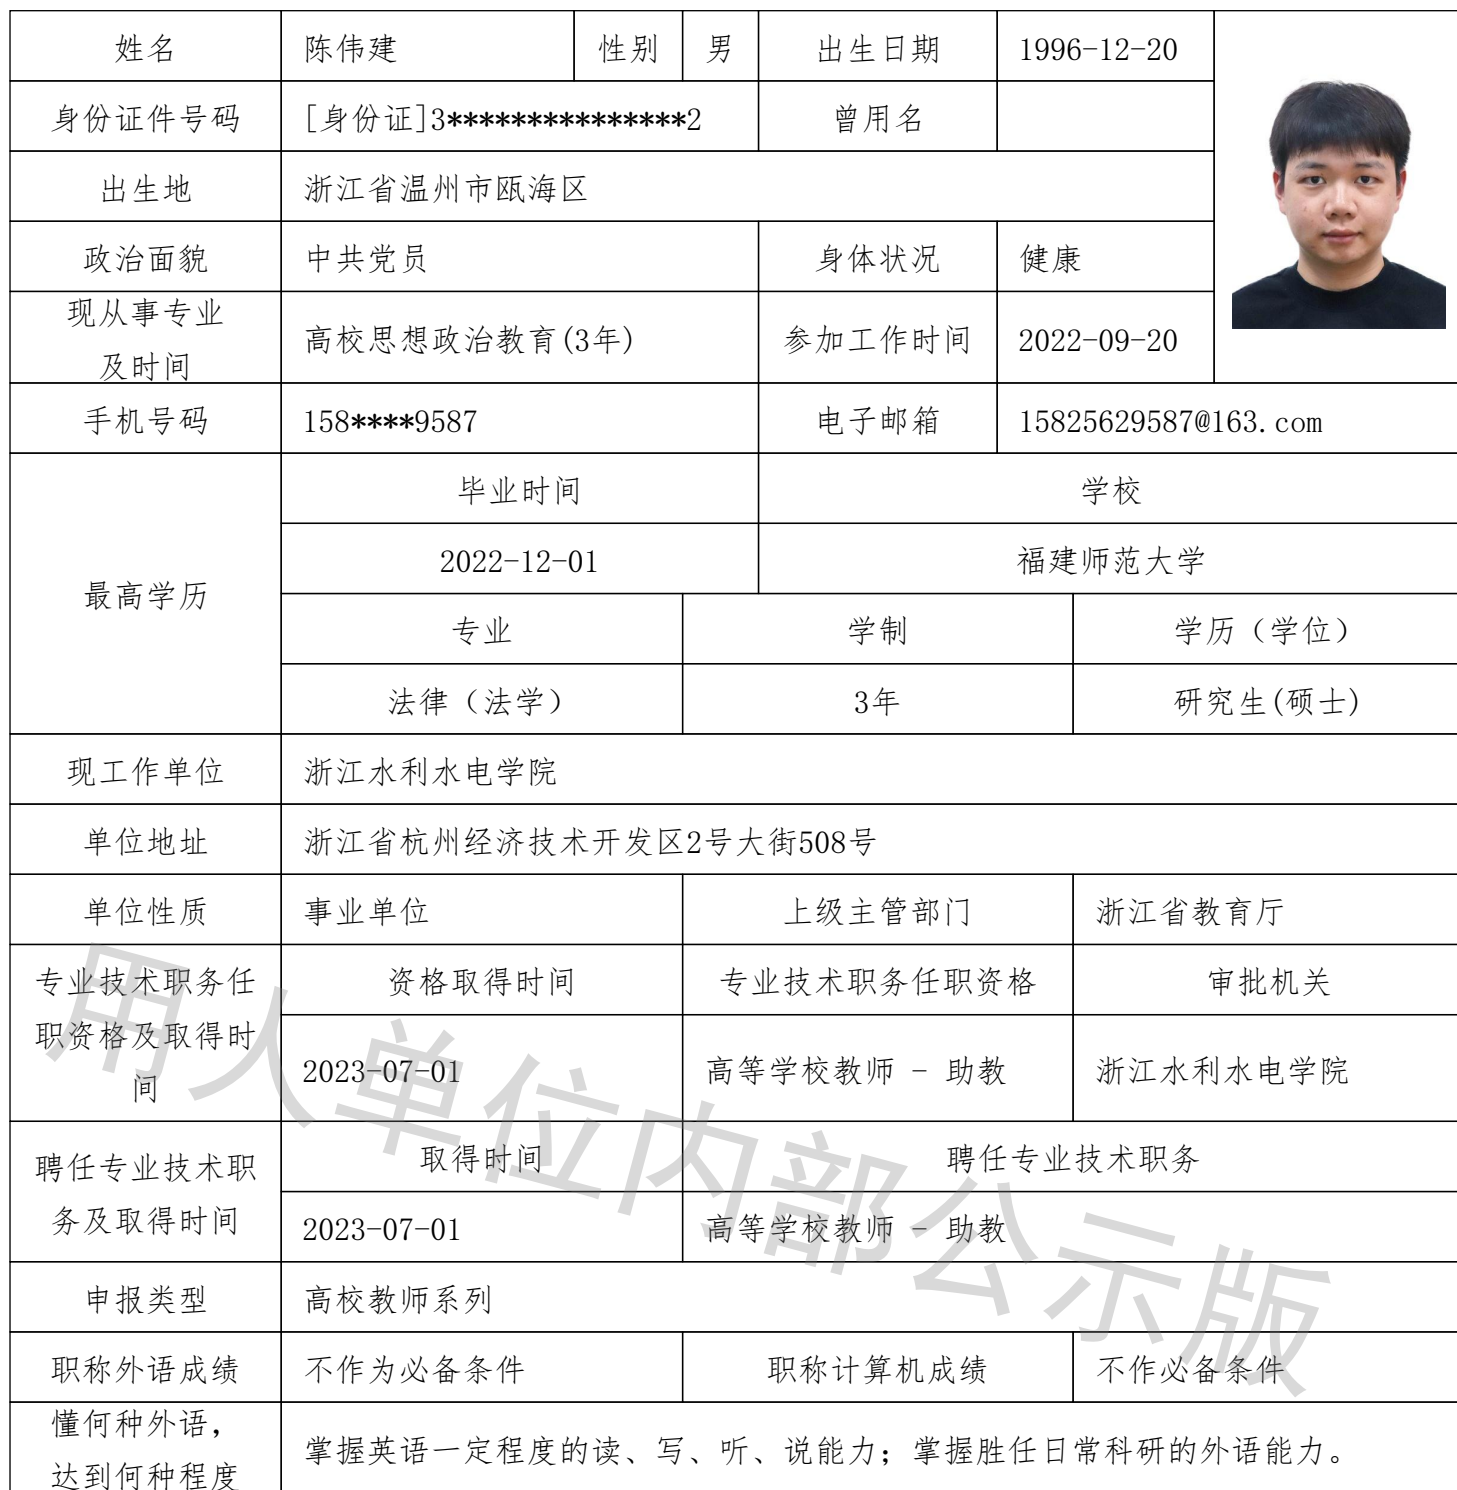 姓名 陈伟建 性别 男 出生日期 1996-12-20
身份证件号码 [身份证]3***************2 曾用名
出生地 浙江省温州市瓯海区
政治面貌 中共党员 身体状况 健康
现从事专业
及时间 高校思想政治教育(3年) 参加工作时间 2022-09-20
手机号码 158****9587 电子邮箱 15825629587@163.com
最高学历
毕业时间 学校
2022-12-01 福建师范大学
专业 学制 学历（学位）
法律（法学） 3年 研究生(硕士)
现工作单位 浙江水利水电学院
单位地址 浙江省杭州经济技术开发区2号大街508号
单位性质 事业单位 上级主管部门 浙江省教育厅
专业技术职务任
职资格及取得时
间
资格取得时间 专业技术职务任职资格 审批机关
2023-07-01 高等学校教师 - 助教 浙江水利水电学院
聘任专业技术职
务及取得时间
取得时间 聘任专业技术职务
2023-07-01 高等学校教师 - 助教
申报类型 高校教师系列
职称外语成绩 不作为必备条件 职称计算机成绩 不作必备条件
懂何种外语，
达到何种程度 掌握英语一定程度的读、写、听、说能力；掌握胜任日常科研的外语能力。
用人单位内部公示版